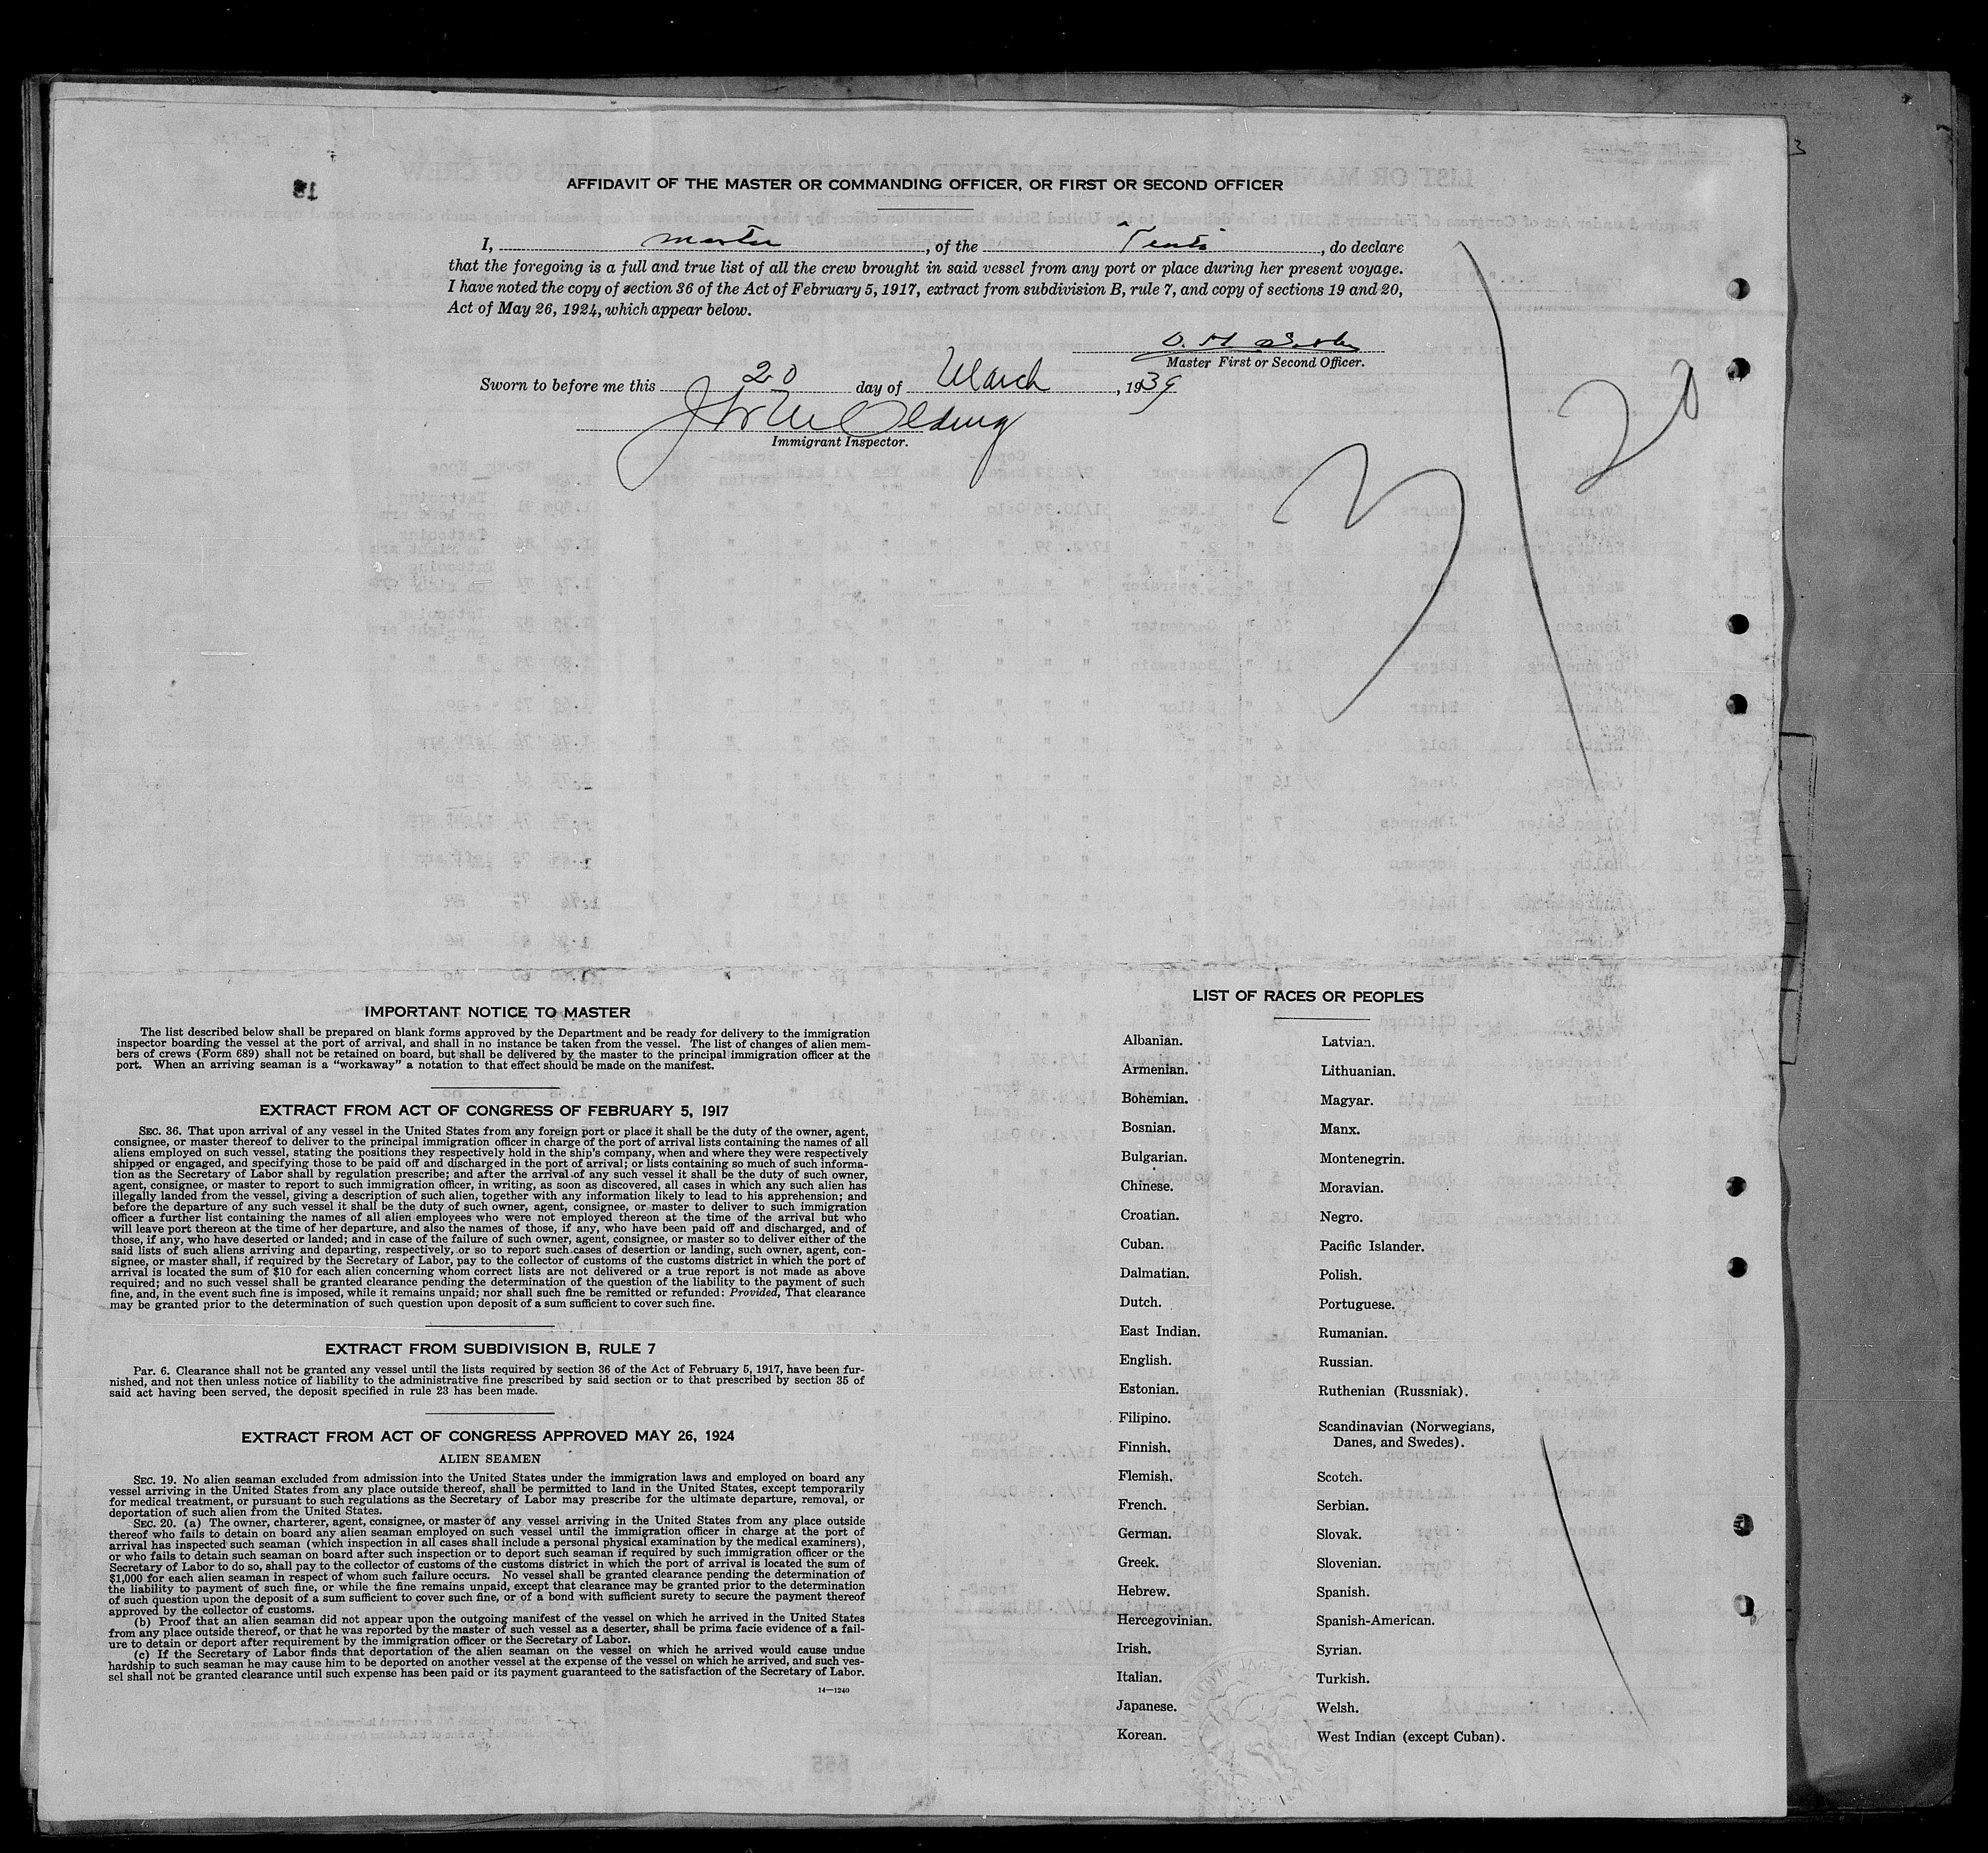 AFFIDAVIT OF THE MASTER OR COMMANDING OFFICER, OR FIRST OR SECOND OFFICER
I, master, of the, do declare
that the foregoing is a full and true list of all the crew brought in said vessel from any port or place during her present voyage.
I have noted the copy of section 36 of the Act of February 5, 1917, extract from subdivision B, rule 7, and copy of sections 19 and 20,
Act of May 26, 1924, which appear below.
Master First or Second Officer.
Sworn to before me this 20 day of March, 1939
Immigrant Inspector.
3/20
IMPORTANT NOTICE TO MASTER
The list described below shall be prepared on blank forms approved by the Department and be ready for delivery to the immigration
inspector boarding the vessel at the port of arrival, and shall in no instance be taken from the vessel. The list of changes of alien mem-
bers of crews (Form 689) shall not be retained on board, but shall be delivered by the master to the principal immigration officer at the
port. When an arriving seaman is a "workaway" a notation to that effect should be made on the manifest.
EXTRACT FROM ACT OF CONGRESS OF FEBRUARY 5, 1917
SEC. 36. That upon arrival of any vessel in the United States from any foreign port or place it shall be the duty of the owner, agent,
consignee, or master thereof to deliver to the principal immigration officer in charge of the port of arrival lists containing the names of all
aliens employed on such vessel, stating the positions they respectively hold in the ship's company, when and where they were respectively
shipped or engaged, and specifying those to be paid off and discharged in the port of arrival; or lists containing so much of such informa-
tion as the Secretary of Labor shall by regulation prescribe; and after the arrival of any such vessel it shall be the duty of such owner,
agent, consignee, or master to report to such immigration officer, in writing, as soon as discovered, all cases in which any such alien has
illegally landed from the vessel, giving a description of such alien, together with any information likely to lead to his apprehension; and
before the departure of any such vessel it shall be the duty of such owner, agent, consignee, or master to deliver to such immigration
officer a further list containing the names of all alien employees who were not employed thereon at the time of the arrival but who
will leave port thereon at the time of her departure, and also the names of those, if any, who have been paid off and discharged, and of
those, if any, who have deserted or landed; and in case of the failure of such owner, agent, consignee, or master so to deliver either of the
said lists of such aliens arriving and departing, respectively, or so to report such cases of desertion or landing, such owner, agent, con-
signee, or master shall, if required by the Secretary of Labor, pay to the collector of customs of the customs district in which the port of
arrival is located the sum of $10 for each alien concerning whom correct lists are not delivered or a true report is not made as above
required; and no such vessel shall be granted clearance pending the determination of the question of the liability to the payment of such
fine, and, in the event such fine is imposed, while it remains unpaid; nor shall such fine be remitted or refunded: Provided, That clearance
may be granted prior to the determination of such question upon deposit of a sum sufficient to cover such fine.
EXTRACT FROM SUBDIVISION B, RULE 7
Par. 6. Clearance shall not be granted any vessel until the lists required by section 36 of the Act of February 5, 1917, have been fur-
nished, and not then unless notice of liability to the administrative fine prescribed by said section or to that prescribed by section 35 of
said act having been served, the deposit specified in rule 23 has been made.
EXTRACT FROM ACT OF CONGRESS APPROVED MAY 26, 1924
ALIEN SEAMEN
SEC. 19. No alien seaman excluded from admission into the United States under the immigration laws and employed on board any
vessel arriving in the United States from any place outside thereof, shall be permitted to land in the United States, except temporarily
for medical treatment, or pursuant to such regulations as the Secretary of Labor may prescribe for the ultimate departure, removal, or
deportation of such alien from the United States.
SEC. 20. (a) The owner, charterer, agent, consignee, or master of any vessel arriving in the United States from any place outside
thereof who fails to detain on board any alien seaman employed on such vessel until the immigration officer in charge at the port of
arrival has inspected such seaman (which inspection in all cases shall include a personal physical examination by the medical examiners),
or who fails to detain such seaman on board after such inspection or to deport such seaman if required by such immigration officer or the
Secretary of Labor to do so, shall pay to the collector of customs of the customs district in which the port of arrival is located the sum of
$1,000 for each alien seaman in respect of whom such failure occurs. No vessel shall be granted clearance pending the determination of
the liability to payment of such fine, or while the fine remains unpaid, except that clearance may be granted prior to the determination
of such question upon the deposit of a sum sufficient to cover such fine, or of a bond with sufficient surety to secure the payment thereof
approved by the collector of customs.
(b) Proof that an alien seaman did not appear upon the outgoing manifest of the vessel on which he arrived in the United States
from any place outside thereof, or that he was reported by the master of such vessel as a deserter, shall be prima facie evidence of a fail-
ure to detain or deport after requirement by the immigration officer or the Secretary of Labor.
(c) If the Secretary of Labor finds that deportation of the alien seaman on the vessel on which he arrived would cause undue
hardship to such seaman he may cause him to be deported on another vessel at the expense of the vessel on which he arrived, and such ves-
sel shall not be granted clearance until such expense has been paid or its payment guaranteed to the satisfaction of the Secretary of Labor.
14—1240
LIST OF RACES OR PEOPLES
Albanian.
Armenian.
Bohemian.
Bosnian.
Bulgarian.
Chinese.
Croatian.
Cuban.
Dalmatian.
Dutch.
East Indian.
English.
Estonian.
Filipino.
Finnish.
Flemish.
French.
German.
Greek.
Hebrew.
Hercegovinian.
Irish.
Italian.
Japanese.
Korean.
Latvian.
Lithuanian.
Magyar.
Manx.
Montenegrin.
Moravian.
Negro.
Pacific Islander.
Polish.
Portuguese.
Rumanian.
Russian.
Ruthenian (Russniak).
Scandinavian (Norwegians,
Danes, and Swedes).
Scotch.
Serbian.
Slovak.
Slovenian.
Spanish.
Spanish-American.
Syrian.
Turkish.
Welsh.
West Indian (except Cuban).